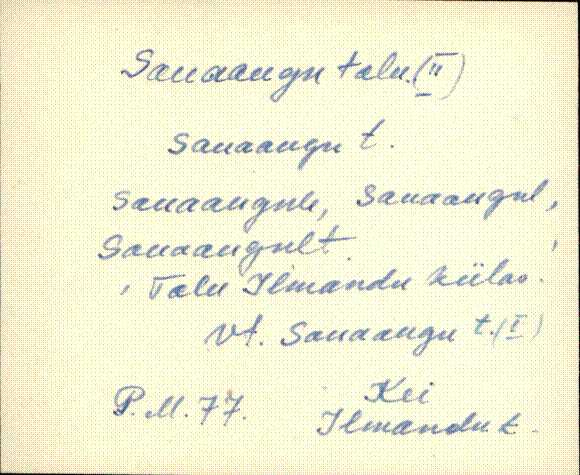 Sauaaugu talu (II)
Sauaaugu t.
Sauaaugule, Sauaaugul,
Sauaaugult.
Talu Ilmandu külas.
Vt. Sauaaugu t. (I)
P.M. 77. Kei
Ilmandu k.